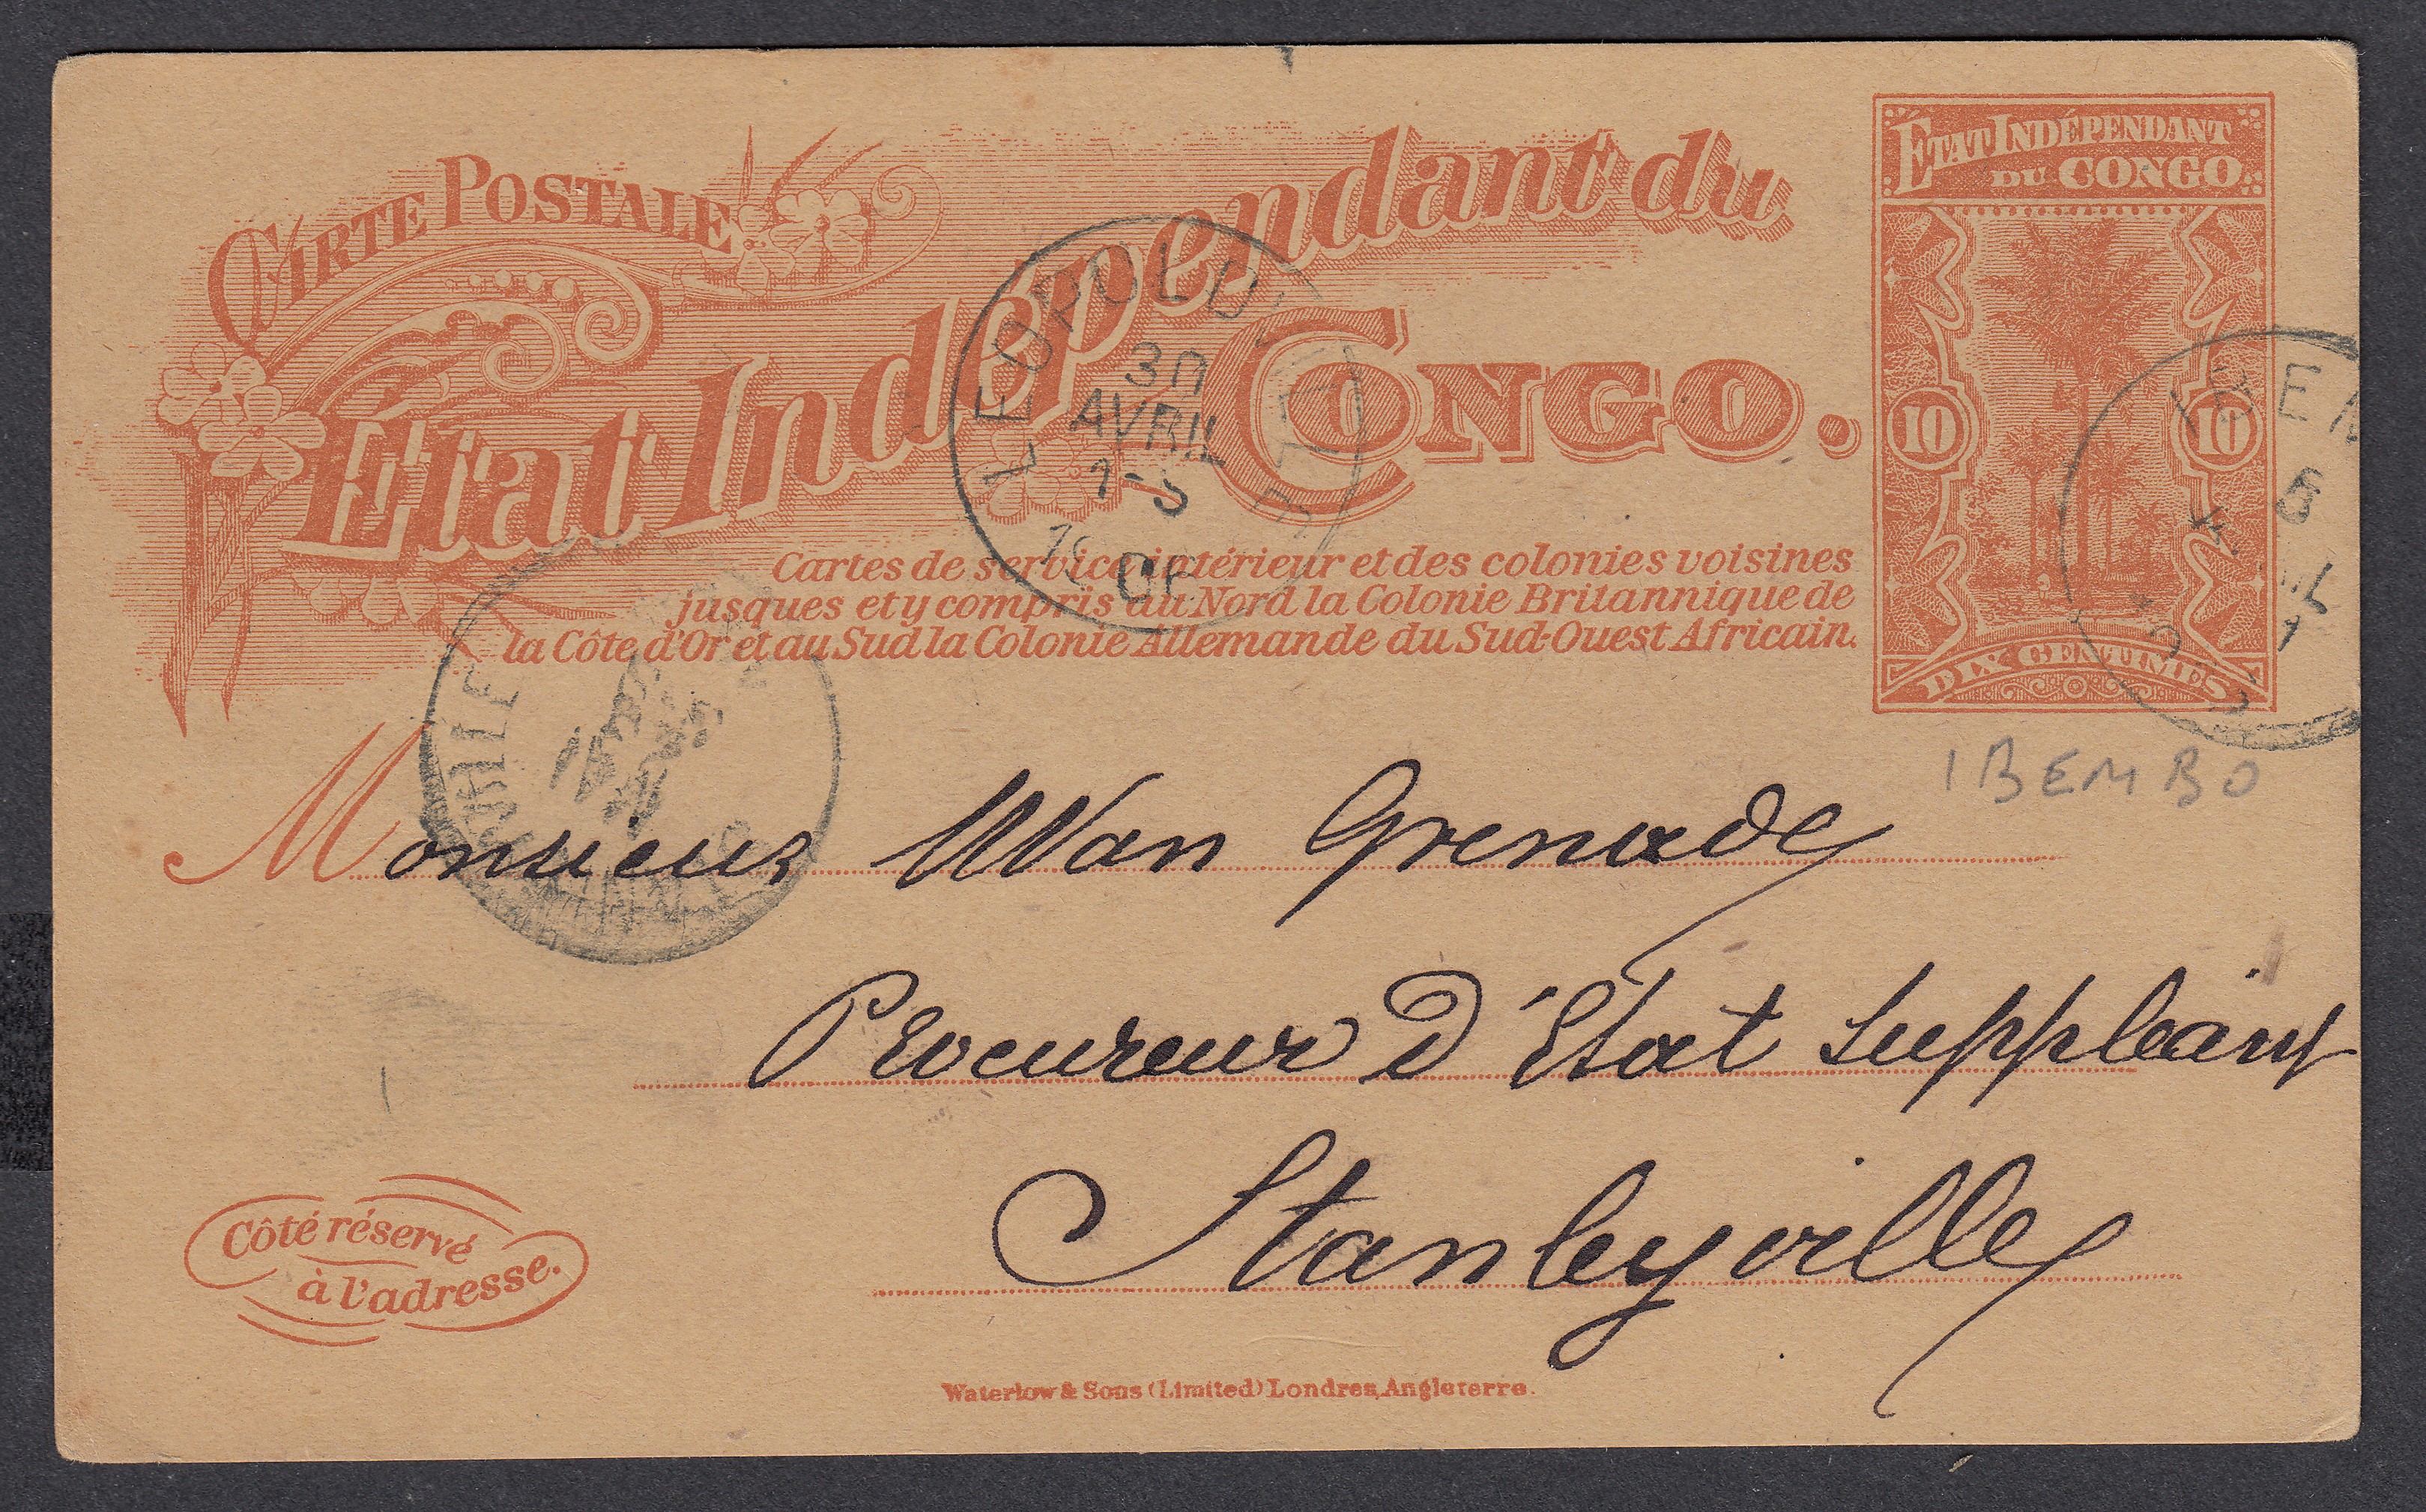 CARTE POSTALE
État Indépendant du
CONGO.
ÉTAT INDÉPENDANT
DU CONGO
10 10
DIX CENTIMES
LEOPOLDVILLE
30
AVRIL
1-S
1906
IBEM
5
Cartes de service intérieur et des colonies voisines
jusques et y compris au Nord la Colonie Britannique de
la Côte d'Or et au Sud la Colonie Allemande du Sud-Ouest Africain.
VILLE
IBEMBO
Monsieur Wan Grenade
Procureur d'État Suppléant
Stanleyville
Côté réservé
à l'adresse.
Waterlow & Sons (Limited) Londres, Angleterre.